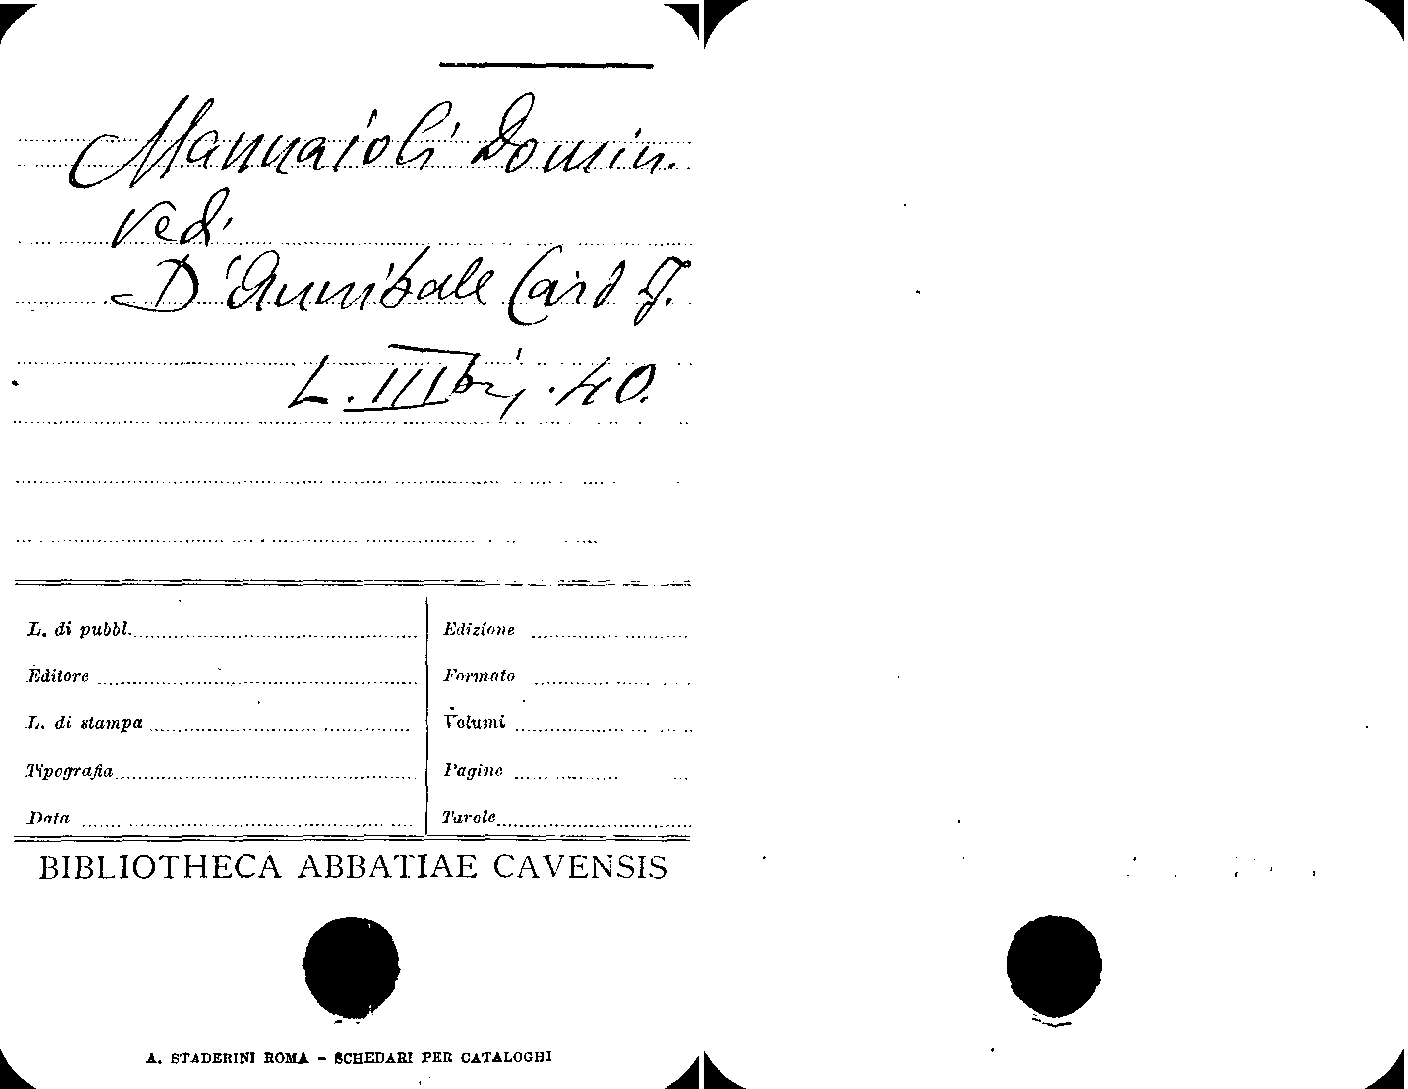 Mannaioli Domin.
vedi
D'Annibale Card J.
L. III bis, . 40.
L. di pubbl.
Edizione
Editore
Formato
L. di stampa
Volumi
Tipografia
Pagine
Data
Tavole
BIBLIOTHECA ABBATIAE CAVENSIS
A. STADERINI ROMA - SCHEDARI PER CATALOGHI